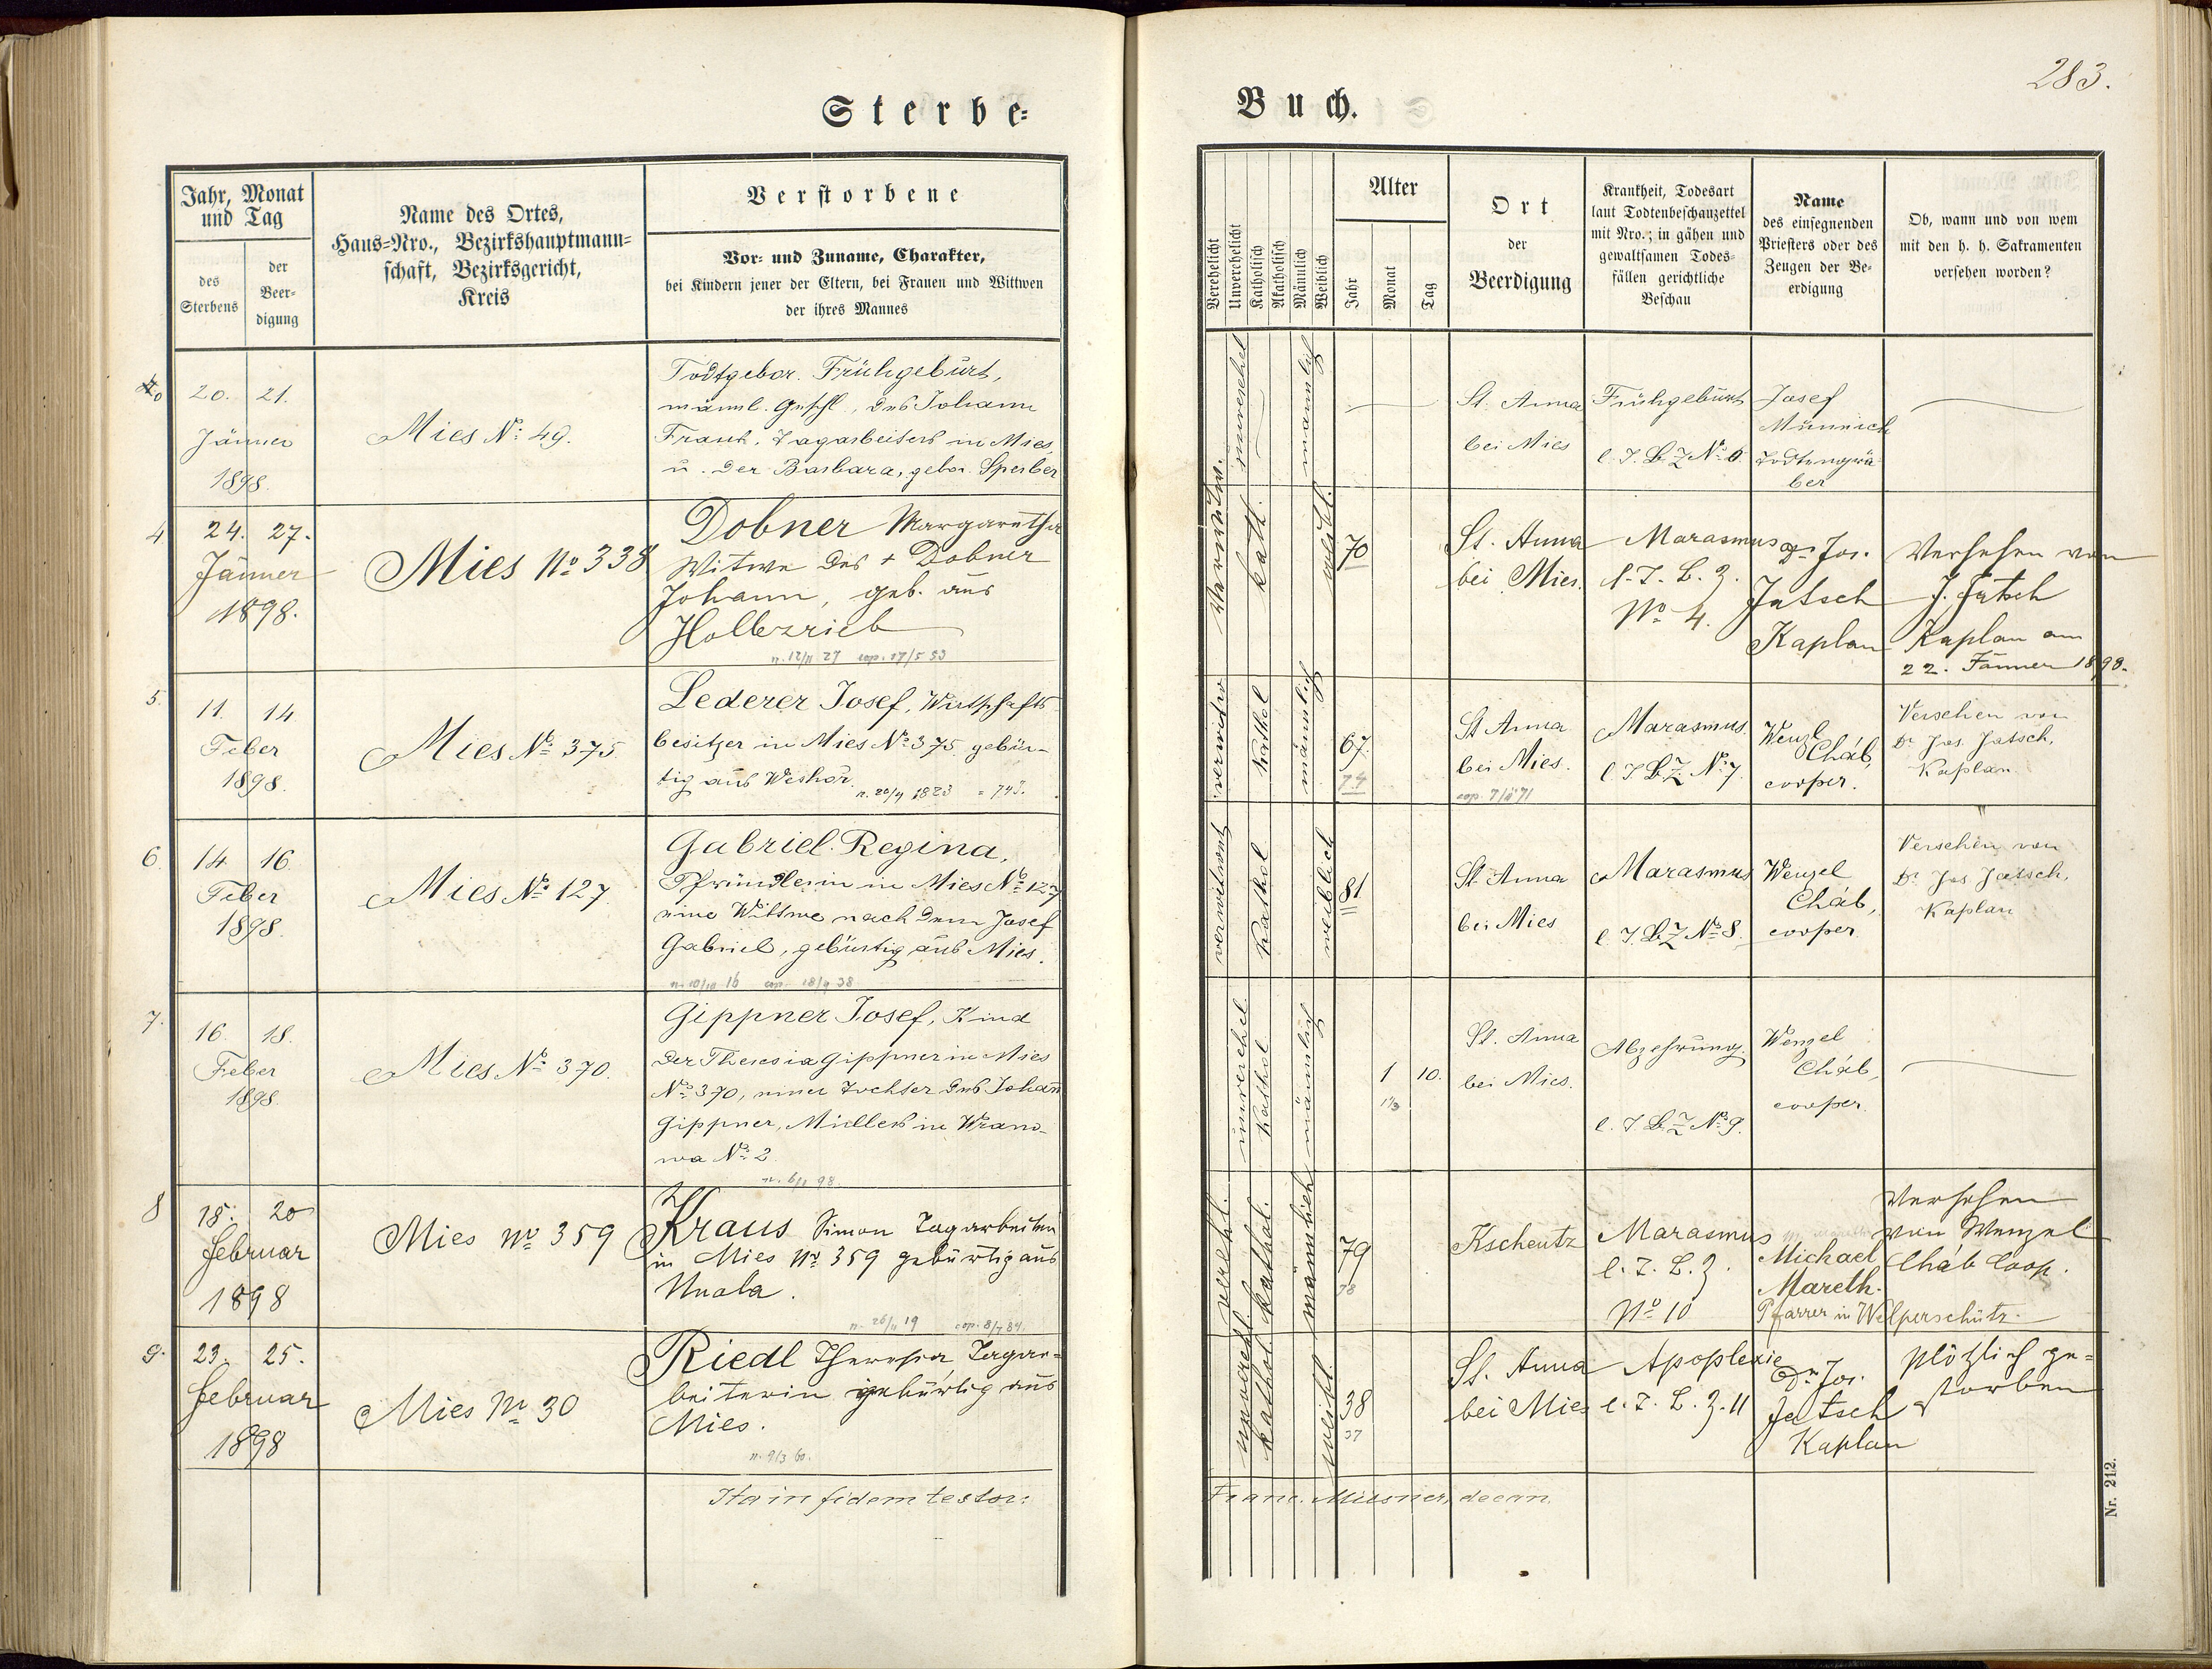 283.
Sterbe-
Buch.
Jahr, Monat
und Tag
des
Sterbens
der
Beer-
digung
Name des Ortes,
Haus-Nro., Bezirkshauptmann-
schaft, Bezirksgericht,
Kreis
Verstorbene
Vor- und Zuname, Charakter,
bei Kindern jener der Eltern, bei Frauen und Wittwen
der ihres Mannes
Verehelicht
Unverehelicht
Katholisch
Akatholisch
Männlich
Weiblich
Alter
Jahr
Monat
Tag
Ort
der
Beerdigung
Krankheit, Todesart
laut Todtenbeschauzettel
mit Nro.; in gähen und
gewaltsamen Todes-
fällen gerichtliche
Beschau
Name
des einsegnenden
Priesters oder des
Zeugen der Be-
erdigung
Ob, wann und von wem
mit den h. h. Sakramenten
versehen worden?
20. 21.
Jänner
1898.
Mies No: 49.
Todtgebor. Frühgeburt,
männl. Geschl., des Johann
Frank, Tagarbeiters in Mies,
u. der Barbara, gebor. Sperber
männlich
St. Anna
bei Mies
Frühgeburt
l. T. B. Z No: 6
Josef
Münnich
Todtengrä-
ber
4
24. 27.
Jänner
1898.
Mies No 338
Dobner Margaretha
Witwe des + Dobner
Johann, geb. aus
Hollezrieb
n. 12/11 27 cop. 17/5 53
verwitw.
kath.
weibl.
70
St. Anna
bei Mies.
Marasmus
l. T. B. Z.
No 4.
Dr. Jos.
Jatsch
Kaplan
Versehen von
J. Jatsch
Kaplan am
22. Jänner 1898.
5.
11. 14
Feber
1898.
Mies No: 375
Lederer Josef, Wirtschafts-
besitzer in Mies No: 375, gebür-
tig aus Weshor.
n. 20/4 1823 = 74J.
verwitw
kathol
männlich
67.
74
St Anna
bei Mies.
cop. 7/2 71
Marasmus.
l. T B. Z. No: 7.
Wenzl
Cháb,
cooper.
Versehen von
Dr Jos. Jatsch,
Kaplan
6.
14 16
Feber
1898.
Mies No: 127.
Gabriel Regina,
Pfründlerin in Mies No: 127
eine Wittwe nach dem Josef
Gabriel, gebürtig aus Mies.
n. 10/10 16 cop. 18/9 38
verwitwet
kathol
weiblich
81.
St. Anna
bei Mies
Marasmus
l. T. B. Z No: 8.
Wenzel
Cháb,
cooper.
Versehen von
Dr Jos Jatsch,
Kaplan
7.
16. 18.
Feber
1898.
Mies No: 370.
Gippner Josef, Kind
der Theresia Gippner in Mies
No: 370, einer Tochter des Johann
Gippner, Müllers in Wrano-
wa No: 2.
n. 6/1 98.
unverehel
kathol
männlich
1 10.
1 1/3
St. Anna
bei Mies.
Abzehrung.
l. T B Z No: 9.
Wenzel
Cháb,
cooper.
8
18. 20
Februar
1898
Mies No 359
Kraus Simon Tagarbeiter
in Mies No. 359 gebürtig aus
n. 26/11 19 cop. 8/7 84.
verehl.
kathol.
männlich
79
78
Kscheutz
Marasmus
l. T. B. Z.
No 10
Michael
Mareth.
Pfarrer in Welperschütz.
Versehen
von Wenzel
Cháb Coop.
9.
23. 25.
Februar
1898
Mies No. 30
Riedl Theresia, Tagar-
beiterin gebürtig aus
Mies.
n. 9/3 60.
unverehl.
kathol.
weibl.
38
37
St. Anna
bei Mies
Apoplexie
l. T. B. Z. 11
Dr. Jos.
Jatsch
Kaplan
Plötzlich ge-
storben
Ita in fidem testor:
Franc. Miesner, decan.
Nr. 212.